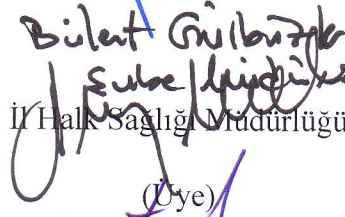 Bülent
Şube Müdürü
İl Halk Sağlığı Müdürlüğü
(Üye)